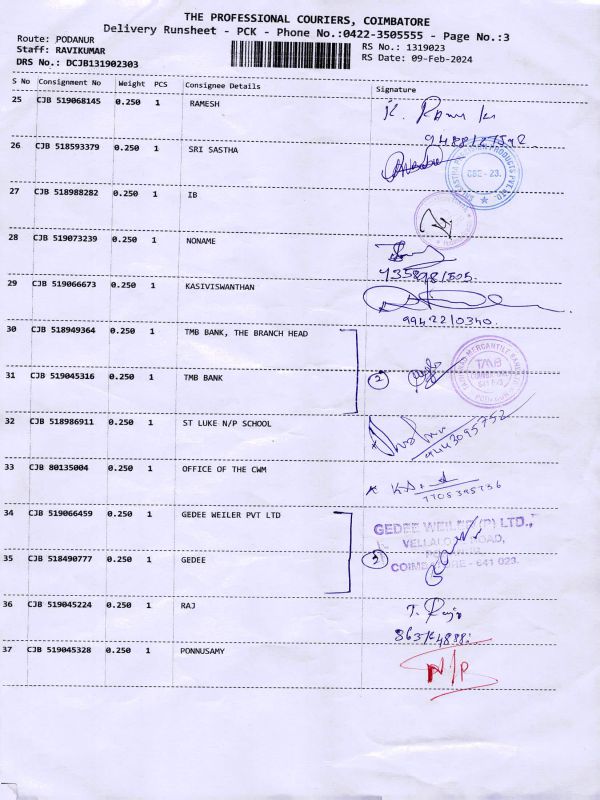 THE PROFESSIONAL COURIERS, COIMBATORE
Delivery Runsheet - PCK - Phone No.:0422-3505555 - Page No.:3
Route: PODANUR
RS No.: 1319023
Staff: RAVIKUMAR
RS Date: 09-Feb-2024
DRS No.: DCJB131902303
S No Consignment No Weight PCS Consignee Details Signature
25 CJB 519068145 0.250 1 RAMESH
26 CJB 518593379 0.250 1 SRI SASTHA
CBE - 23.
27 CJB 518988282 0.250 1 IB
28 CJB 519073239 0.250 1 NONAME
29 CJB 519066673 0.250 1 KASIVISWANTHAN
9942210340
30 CJB 518949364 0.250 1 TMB BANK, THE BRANCH HEAD
31 CJB 519045316 0.250 1 TMB BANK 2
TMB
32 CJB 518986911 0.250 1 ST LUKE N/P SCHOOL
9443095752
33 CJB 80135004 0.250 1 OFFICE OF THE CWM
34 CJB 519066459 0.250 1 GEDEE WEILER PVT LTD
GEDEE WEILER (P) LTD.,
35 CJB 518490777 0.250 1 GEDEE
COIMBATORE - 641 023.
36 CJB 519045224 0.250 1 RAJ
37 CJB 519045328 0.250 1 PONNUSAMY
N/P